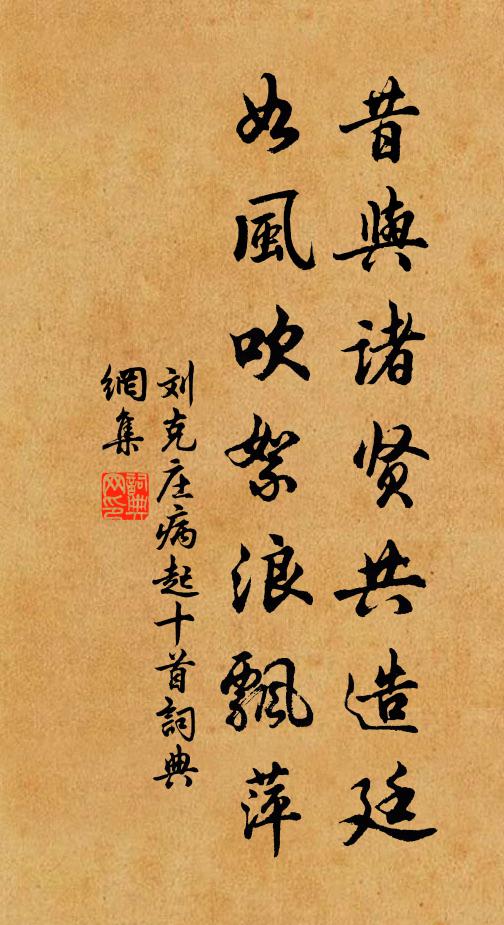 昔與诸贤共造廷
如風吹絮浪飄萍
刘克庄病起十首詞典
網集
詞典网印